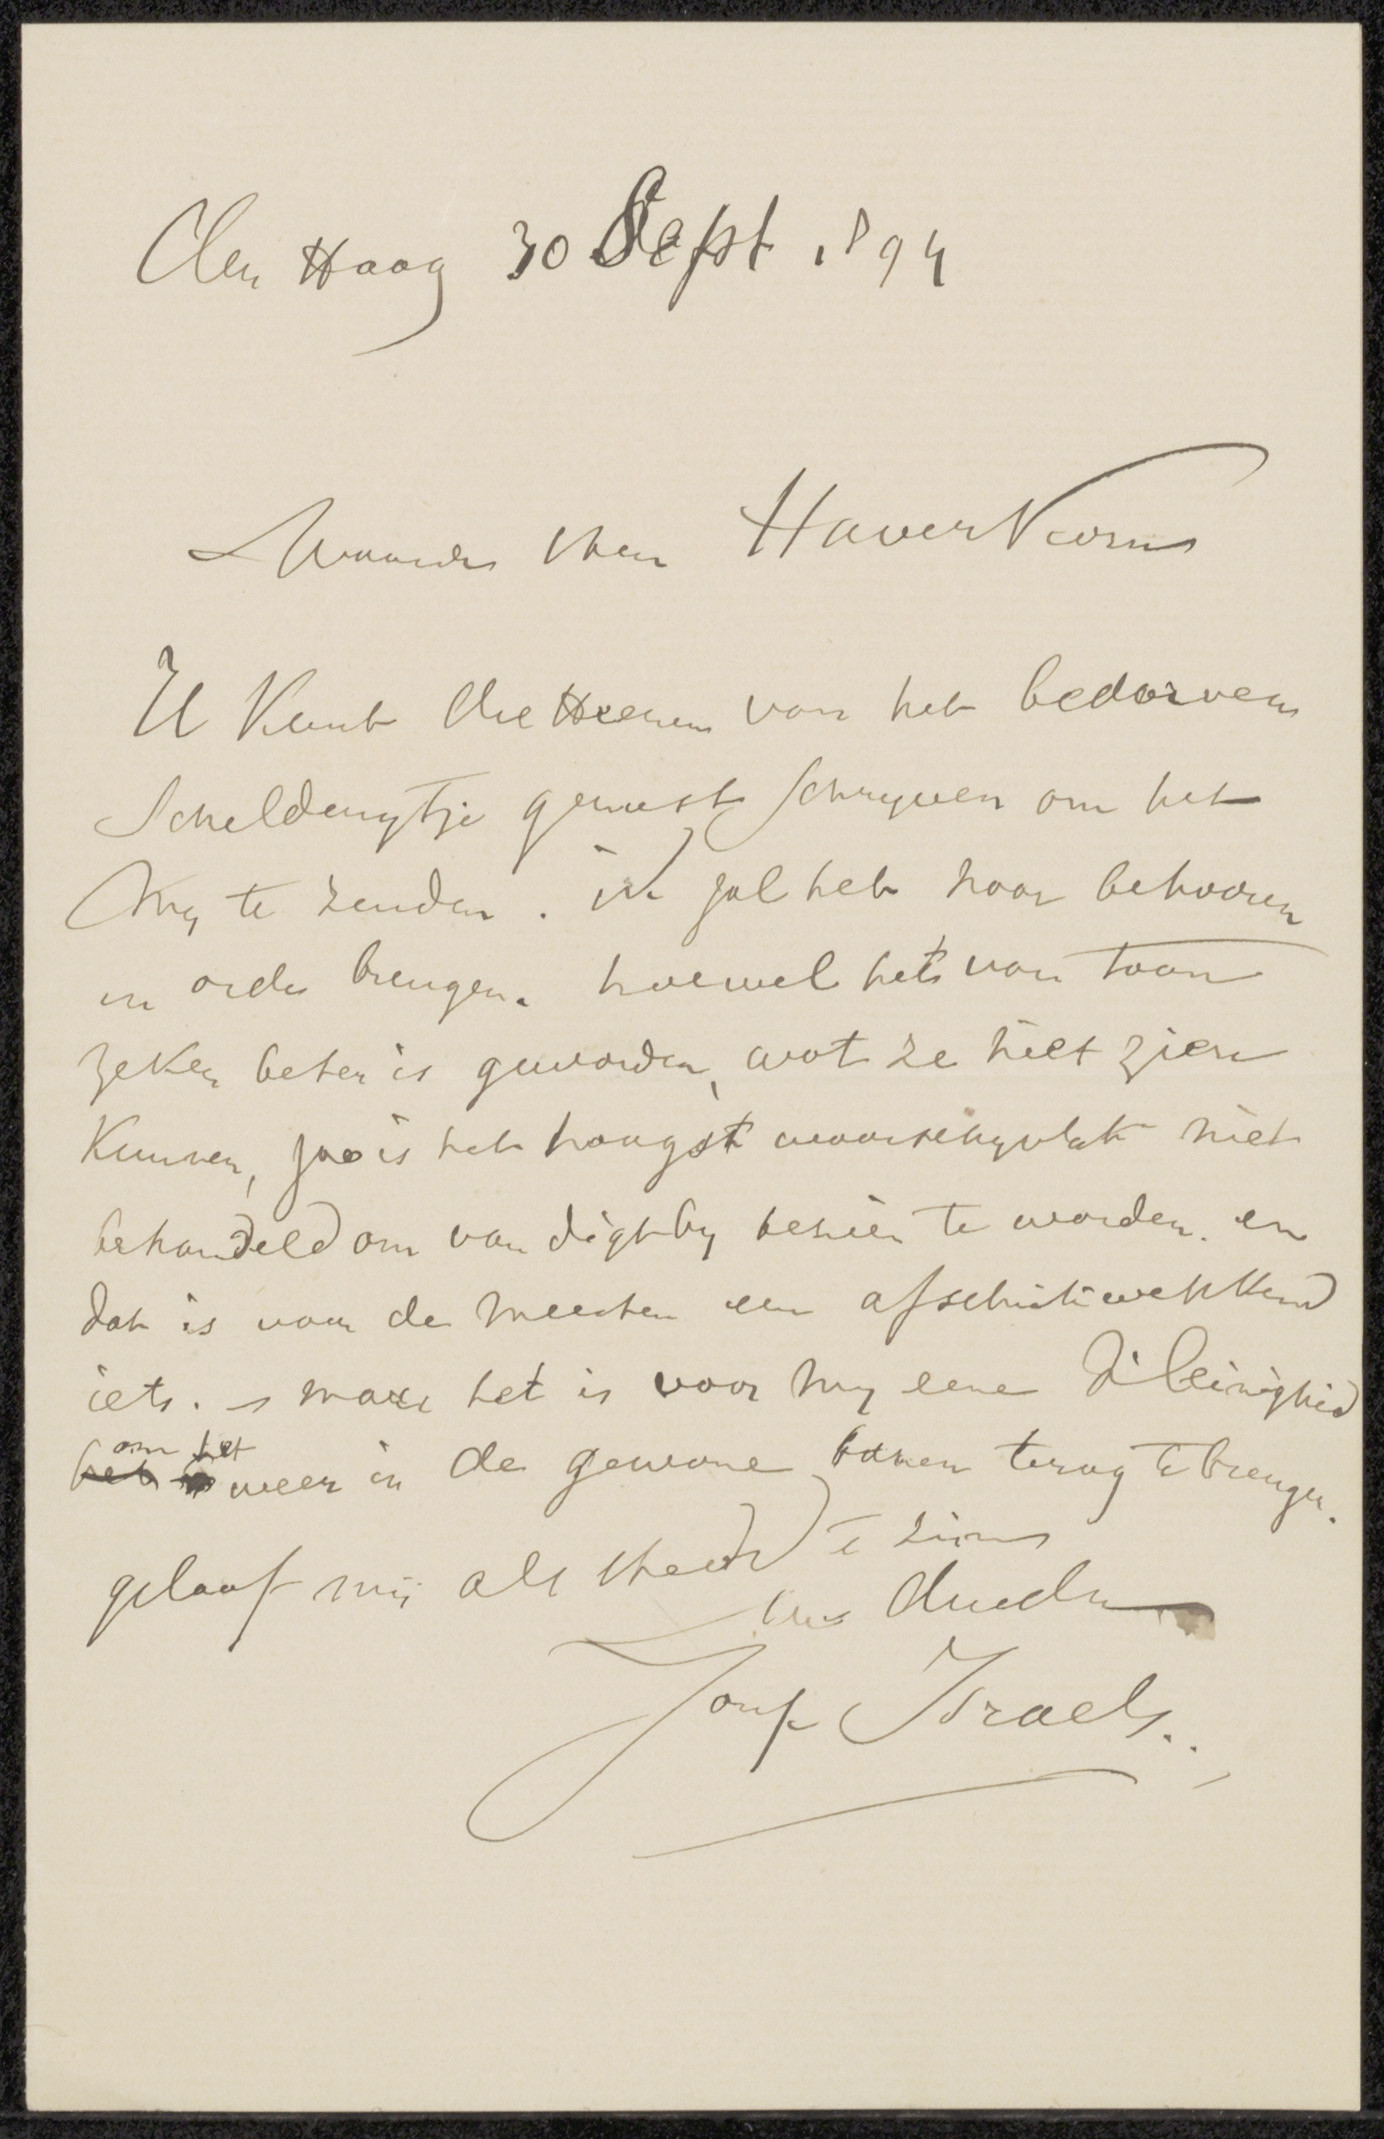 Den Haag 30 Sept 1894
Waarde Heer HaverKorn
U kunt die Heeren van het bedorven
Schilderytje gerust schryven om het
my te zenden. ik zal het naar behooren
in orde brengen. hoewel het van toon
zeker beter is geworden, wat ze niet zien
kunnen, zoo is het hoogst waarschynlyk niet
behandeld om van digtby bezien te worden. en
dat is voor de meesten een afschrikwekkend
iets. – maar het is voor my eene kleinigheid
om het
het is weer in de gewone banen terug te brengen.
geloof mij als steeds te zijn
Uw dienstw
Jozef Israels.